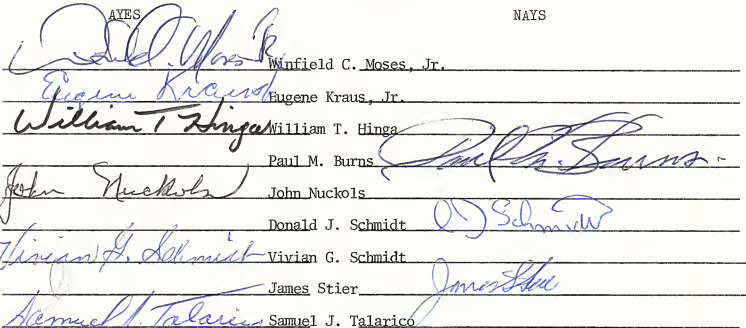 AYES NAYS
Winfield C. Moses, Jr.
Eugene Kraus Eugene Kraus, Jr.
William T Hinga William T. Hinga
Paul M. Burns Paul M. Burns
John Nuckols John Nuckols
Donald J. Schmidt DJ Schmidt
Vivian G. Schmidt Vivian G. Schmidt
James Stier James Stier
Samuel J. Talarico Samuel J. Talarico